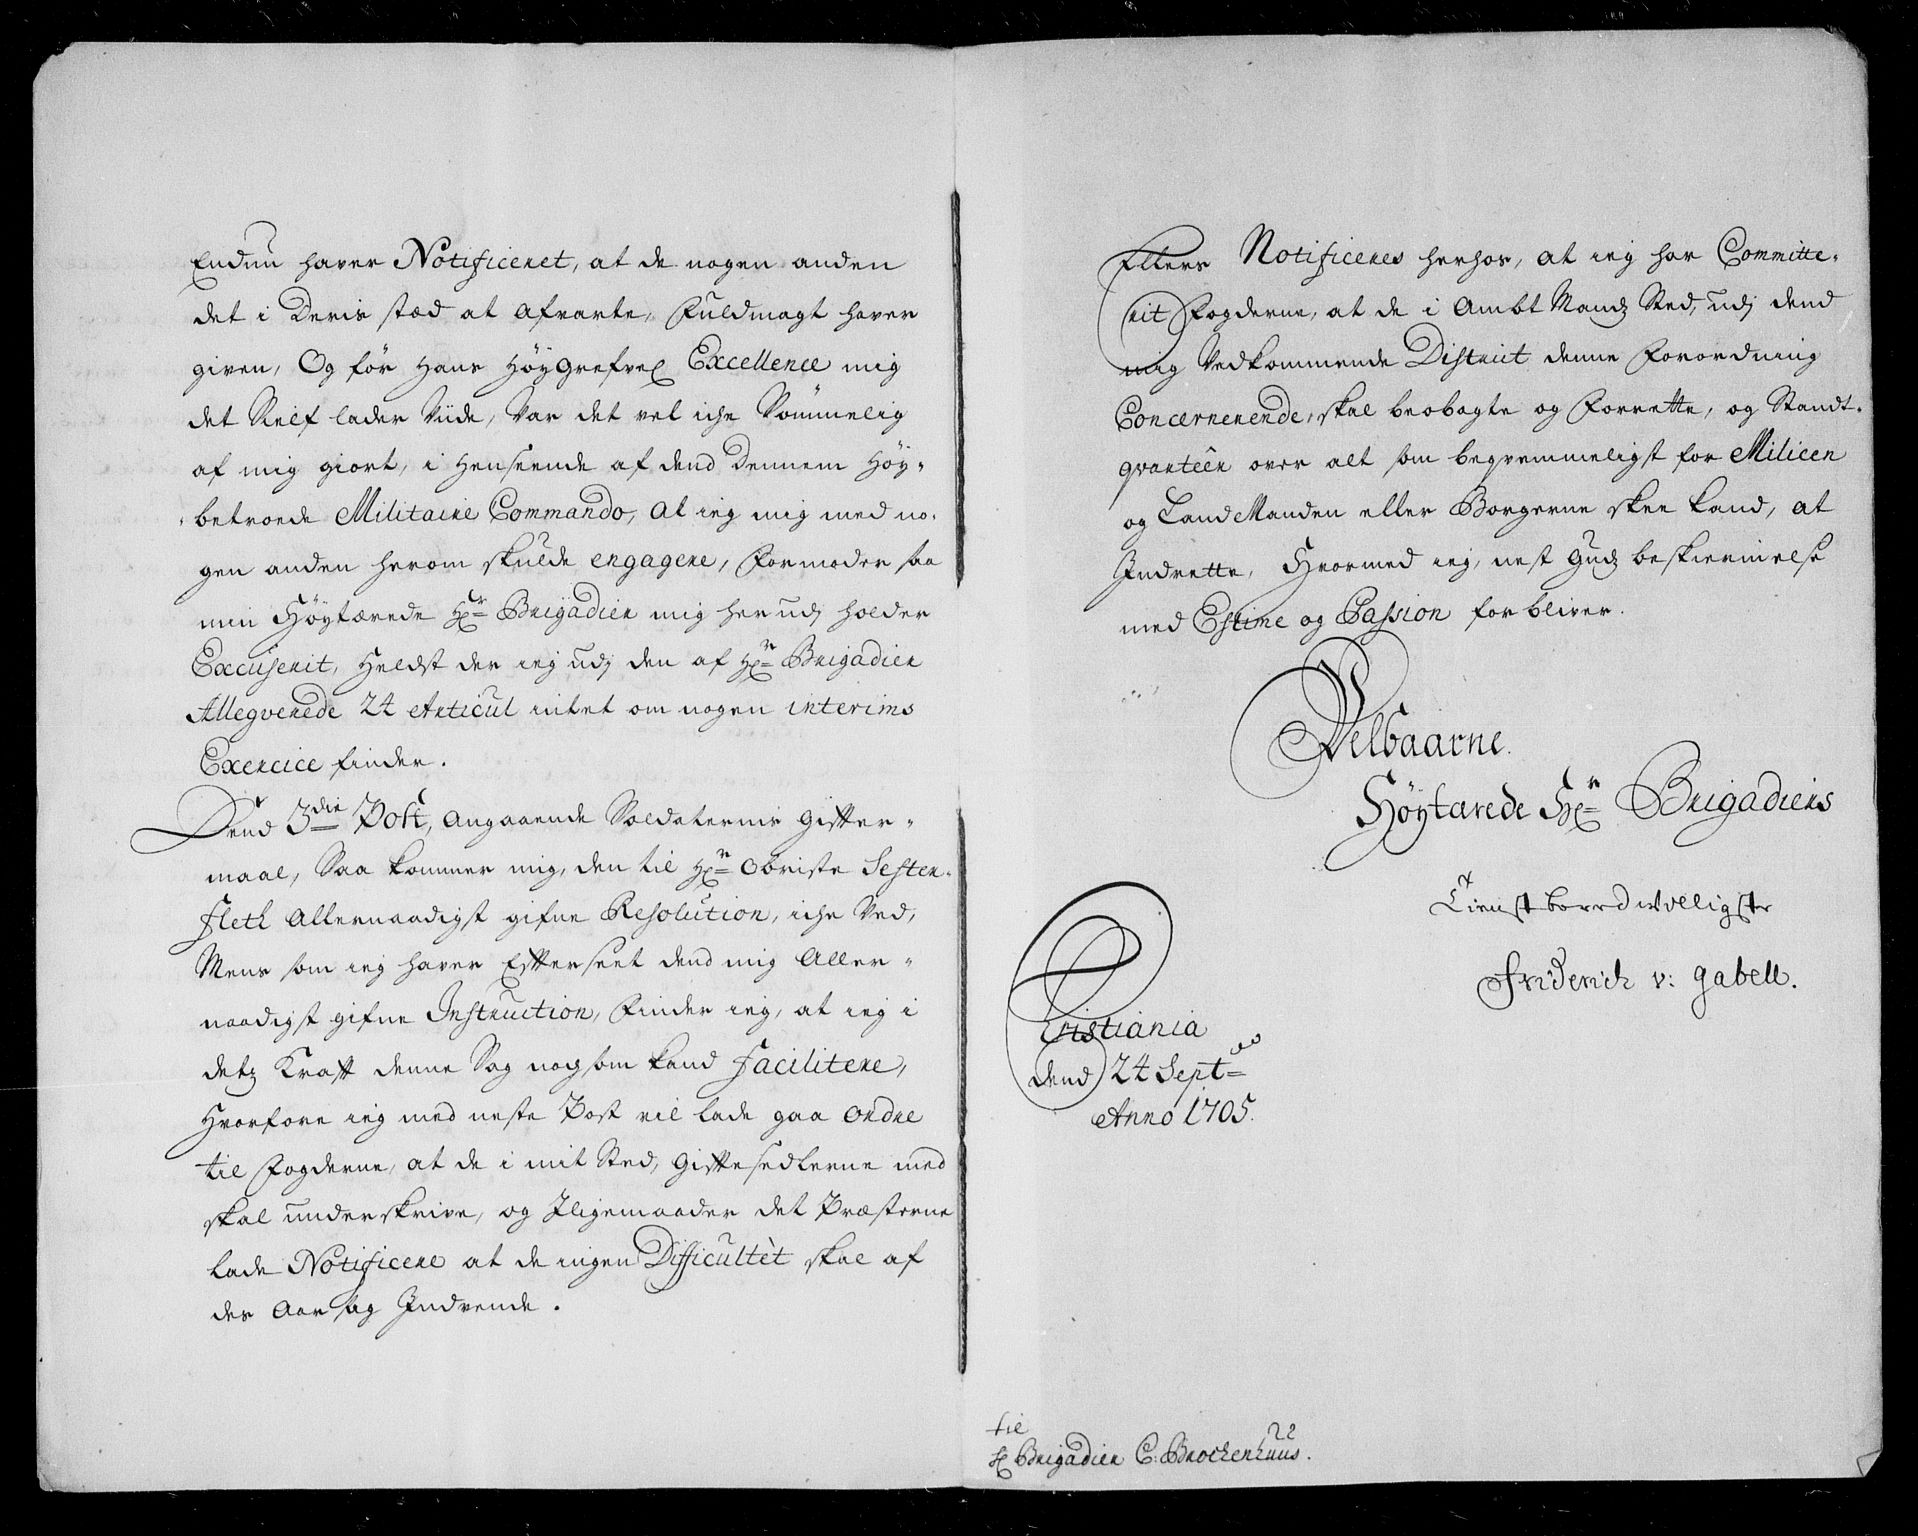 Endnu haver Notificeret, at de nogen anden
det i Deris stæd at afvarte, Fuldmagt haver
given, Og før Hans HøyGrefvel Excellence mig
det Self lader Viide, Var det vel iche Sømmelig
af mig giort, i Henseende af dend Dennem Høy-
betroede Militaire Commando, at ieg mig med no-
gen anden herom skulde engagere, Formoder saa
min Høytærede Hr Brigadier mig herudj holder
Excuserit, Heldst der ieg udj den af Hr Brigadier
Allegverede 24 Articul intet om nogen interims
Exercice finder.
Dend 3die Post, Angaaende Soldaternis Gifter-
maal, Saa kommer mig, den til Hr Obriste Sester-
fleth Allernaadigst gifne Resolution, iche Ved,
Mens som ieg haver Efterseet dend mig Aller-
naadigst gifne Instruction, Finder ieg, at ieg i
detz Kraft denne Sag nogsom kand facilitere,
Hvorfore ieg med neste Post vil lade gaa Ordre
til Fogderne, at de i mit Sted, Giftesedlerne med
skal underskrive, og Iligemaader det Præsterne
lade Notificere at de ingen Difficultèt skal af
des Aarsag Indvende.
Ellers Notificeres herhos, at ieg har Committe-
rit Fogderne, at de i AmbtMandz Sted, udj dend
mig Vedkommende District denne Forordning
Concernerende, skal beobagte og Forrette, og Standt-
qvarteer over alt som beqvemmeligst for Milicen
og LandManden eller Borgerne skee kand, at
Indrette, Hvormed ieg, nest Gudz beskiermelse
med Estime og Passion forbliver.
Velbaarne.
Høytærede Hr Brigadiers
Tienstberedwilligste
Friderich v: Gabell.
Cristiania
dend 24 Septbr
Anno 1705.
til
Hr Brigadier C: Brockenhuus.